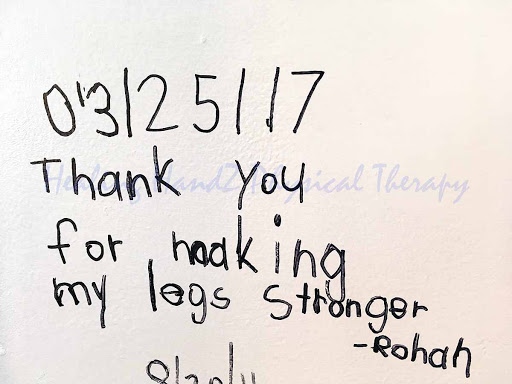 03/25/17
Healing HandZ Physical Therapy
Thank you
for making
my legs stronger
-Rohan